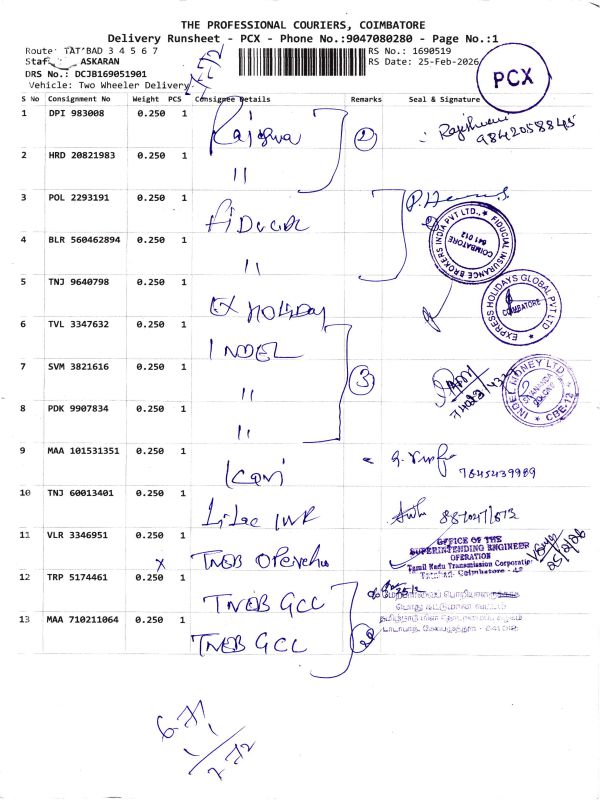 THE PROFESSIONAL COURIERS, COIMBATORE
Delivery Runsheet - PCX - Phone No.:9047080280 - Page No.:1
Route: TAT'BAD 3 4 5 6 7 RS No.: 1690519
ASKARAN RS Date: 25-Feb-2026
DRS No.: DCJB169051901
Vehicle: Two Wheeler Delivery
PCX
S No Consignment No Weight PCS Consignee Details Remarks Seal & Signature
1 DPI 983008 0.250 1
9842058845
2 HRD 20821983 0.250 1 "
3 POL 2293191 0.250 1
FIDUCIAL INSURANCE BROKERS INDIA PVT LTD., COIMBATORE 641 012
4 BLR 560462894 0.250 1 "
5 TNJ 9640798 0.250 1 EX HOLIDAY
EXPRESS HOLIDAYS GLOBAL PVT LTD COIMBATORE
6 TVL 3347632 0.250 1 INDEL
7 SVM 3821616 0.250 1 " 3
INDEL MONEY LTD. CBE-12
8 PDK 9907834 0.250 1 "
9 MAA 101531351 0.250 1
7845439989
10 TNJ 60013401 0.250 1
11 VLR 3346951 0.250 1 x TNEB
OFFICE OF THE
SUPERINTENDING ENGINEER
OPERATION
Tamil Nadu Transmission Corporation
25/2/26
12 TRP 5174461 0.250 1 TNEB GCC
13 MAA 710211064 0.250 1 TNEB GCC